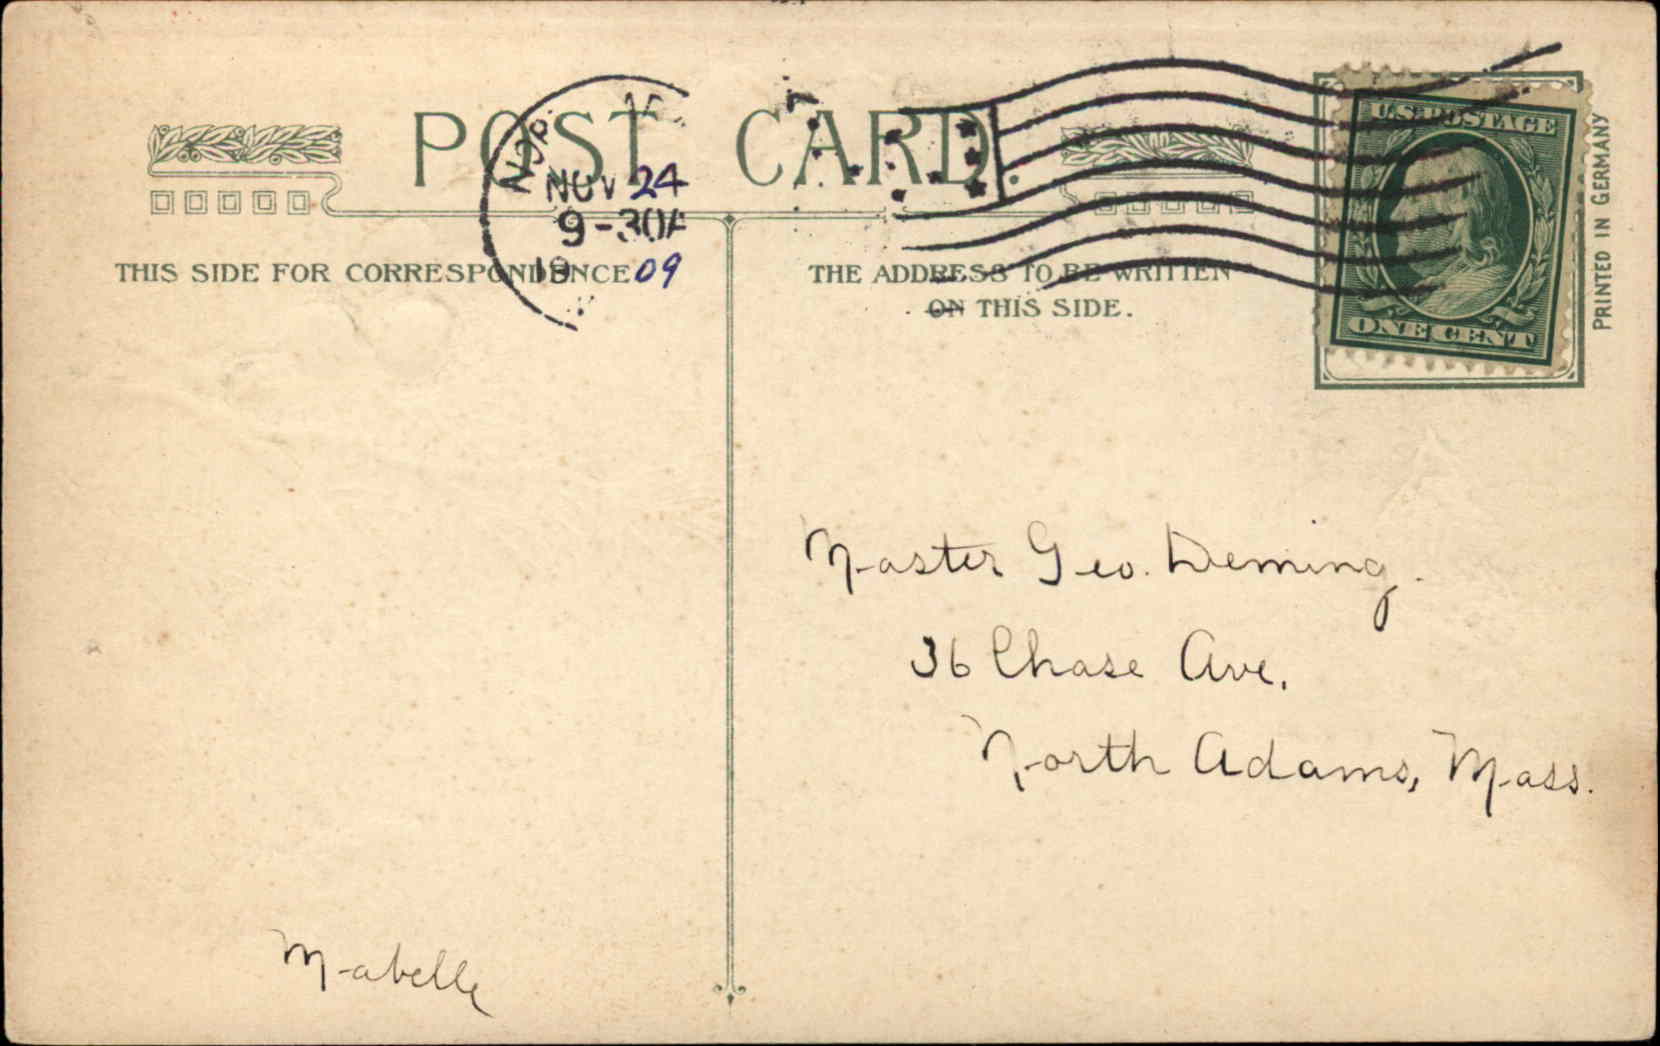 POST CARD.
NOV 24
9-30A
1909
THIS SIDE FOR CORRESPONDENCE
THE ADDRESS TO BE WRITTEN
ON THIS SIDE.
U.S. POSTAGE
ONE CENT
PRINTED IN GERMANY
Master Geo. Deming.
36 Chase Ave,
North Adams, Mass.
Mabelle